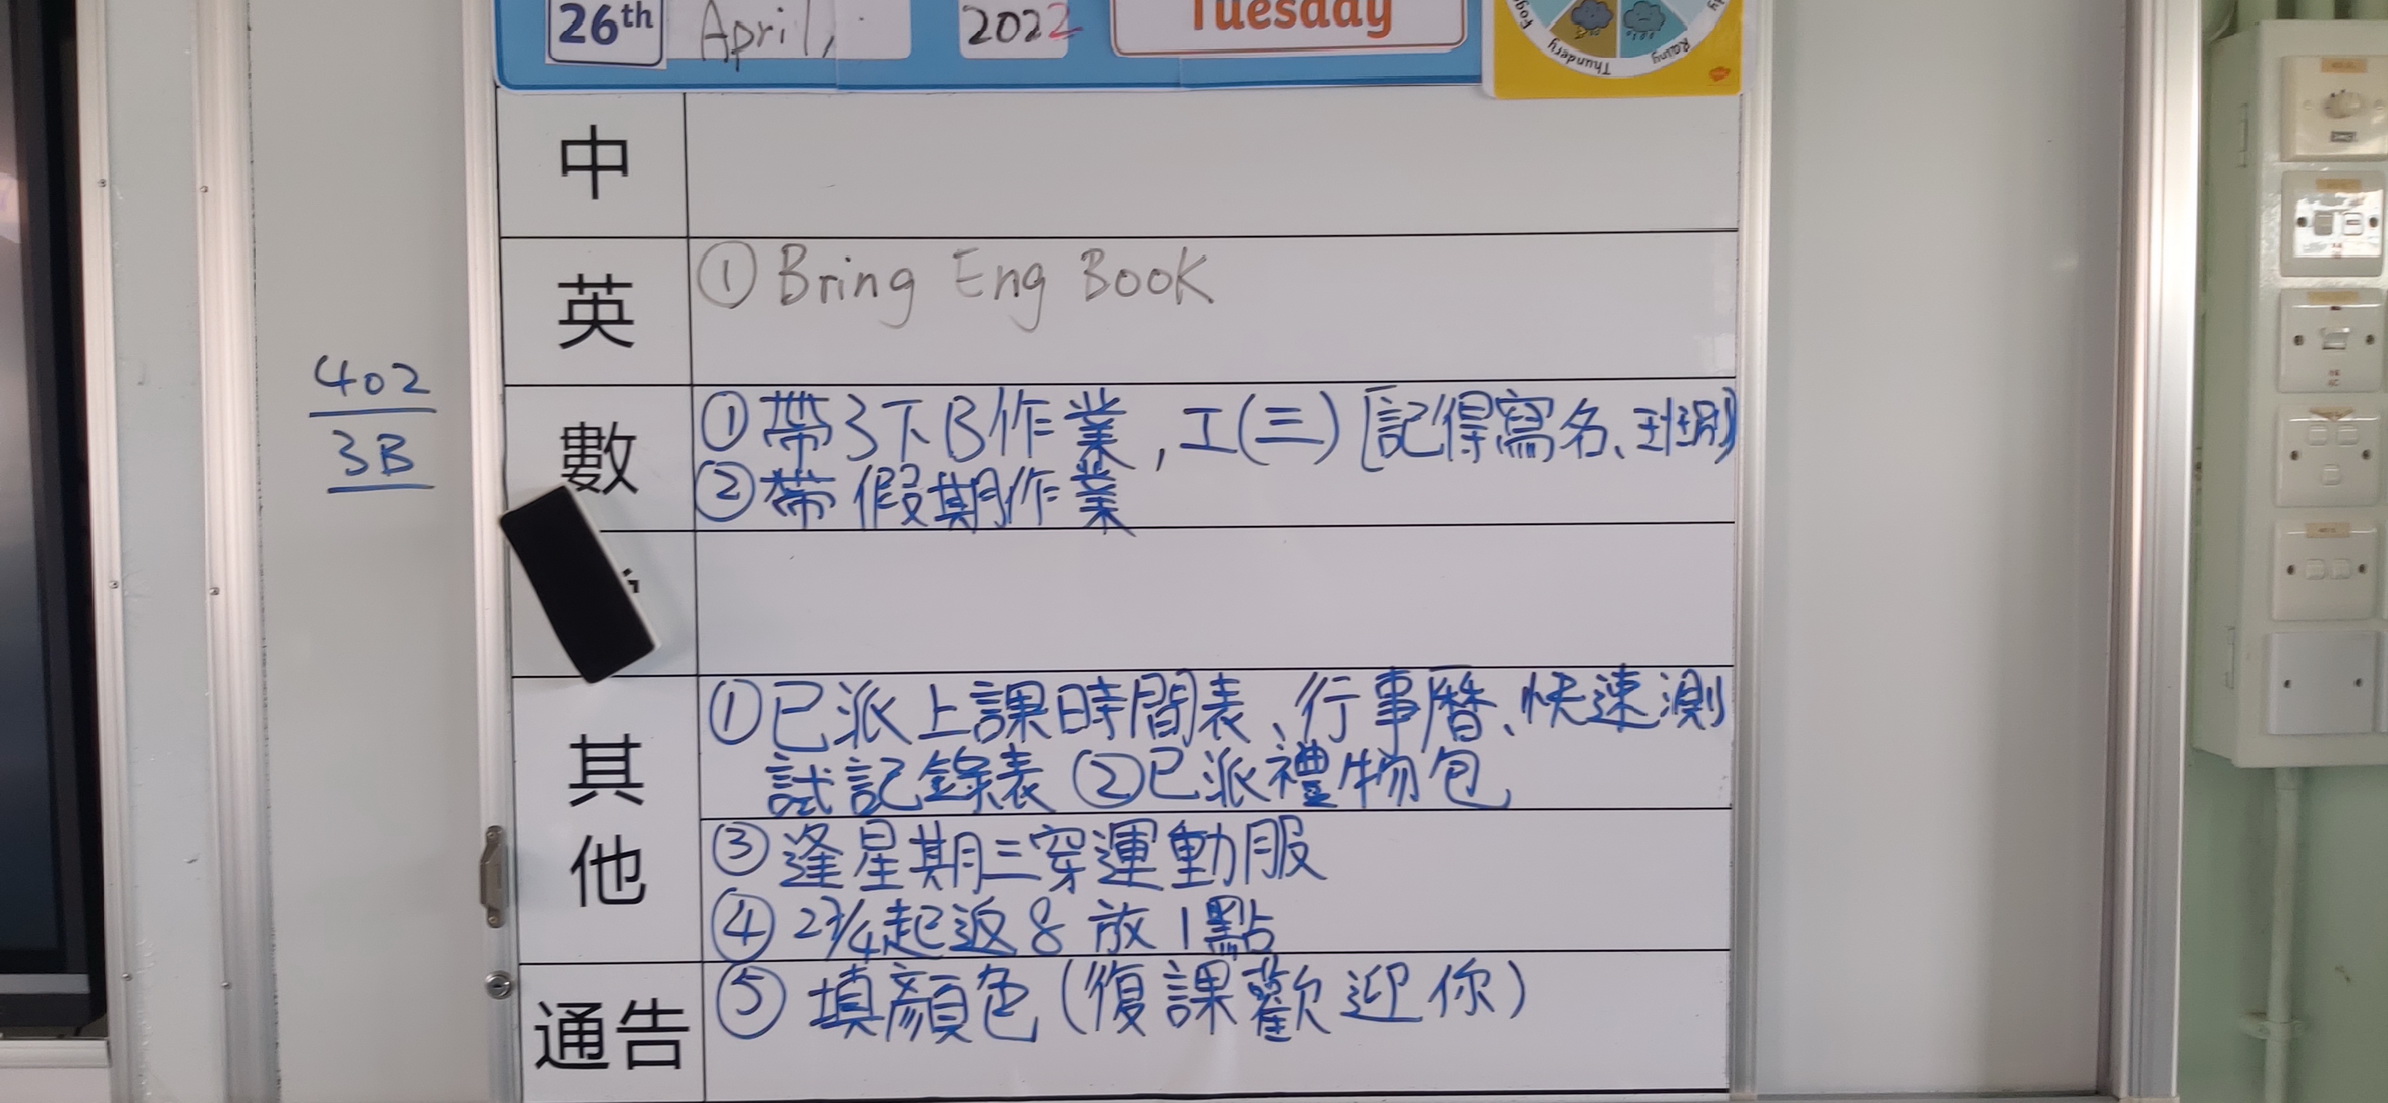 26th April, 2022 Tuesday
Foggy Thundery Rainy
中
英
① Bring Eng Book
402
3B
數
①帶3下B作業,工(三)[記得寫名、班別]
②帶假期作業
其他
①已派上課時間表、行事曆、快速測
試記錄表 ②已派禮物包
③逢星期三穿運動服
④27/4起返8放1點
通告
⑤填顏色(復課歡迎你)